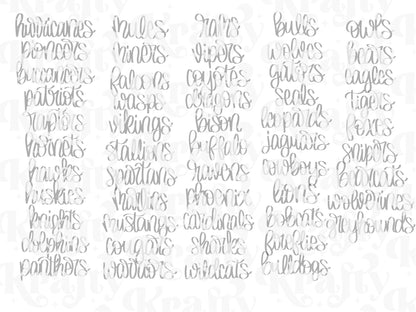 hurricanes
pioneers
buccaneers
patriots
raptors
hornets
hawks
huskies
knights
dolphins
panthers
mules
miners
falcons
wasps
vikings
stallions
spartans
marlins
mustangs
cougars
warriors
rams
vipers
coyotes
dragons
bison
buffalo
ravens
phoenix
cardinals
sharks
wildcats
bulls
wolves
gators
seals
leopards
jaguars
cowboys
lions
bobcats
fireflies
bulldogs
owls
bears
eagles
tigers
foxes
snipers
bearcats
wolverines
greyhounds